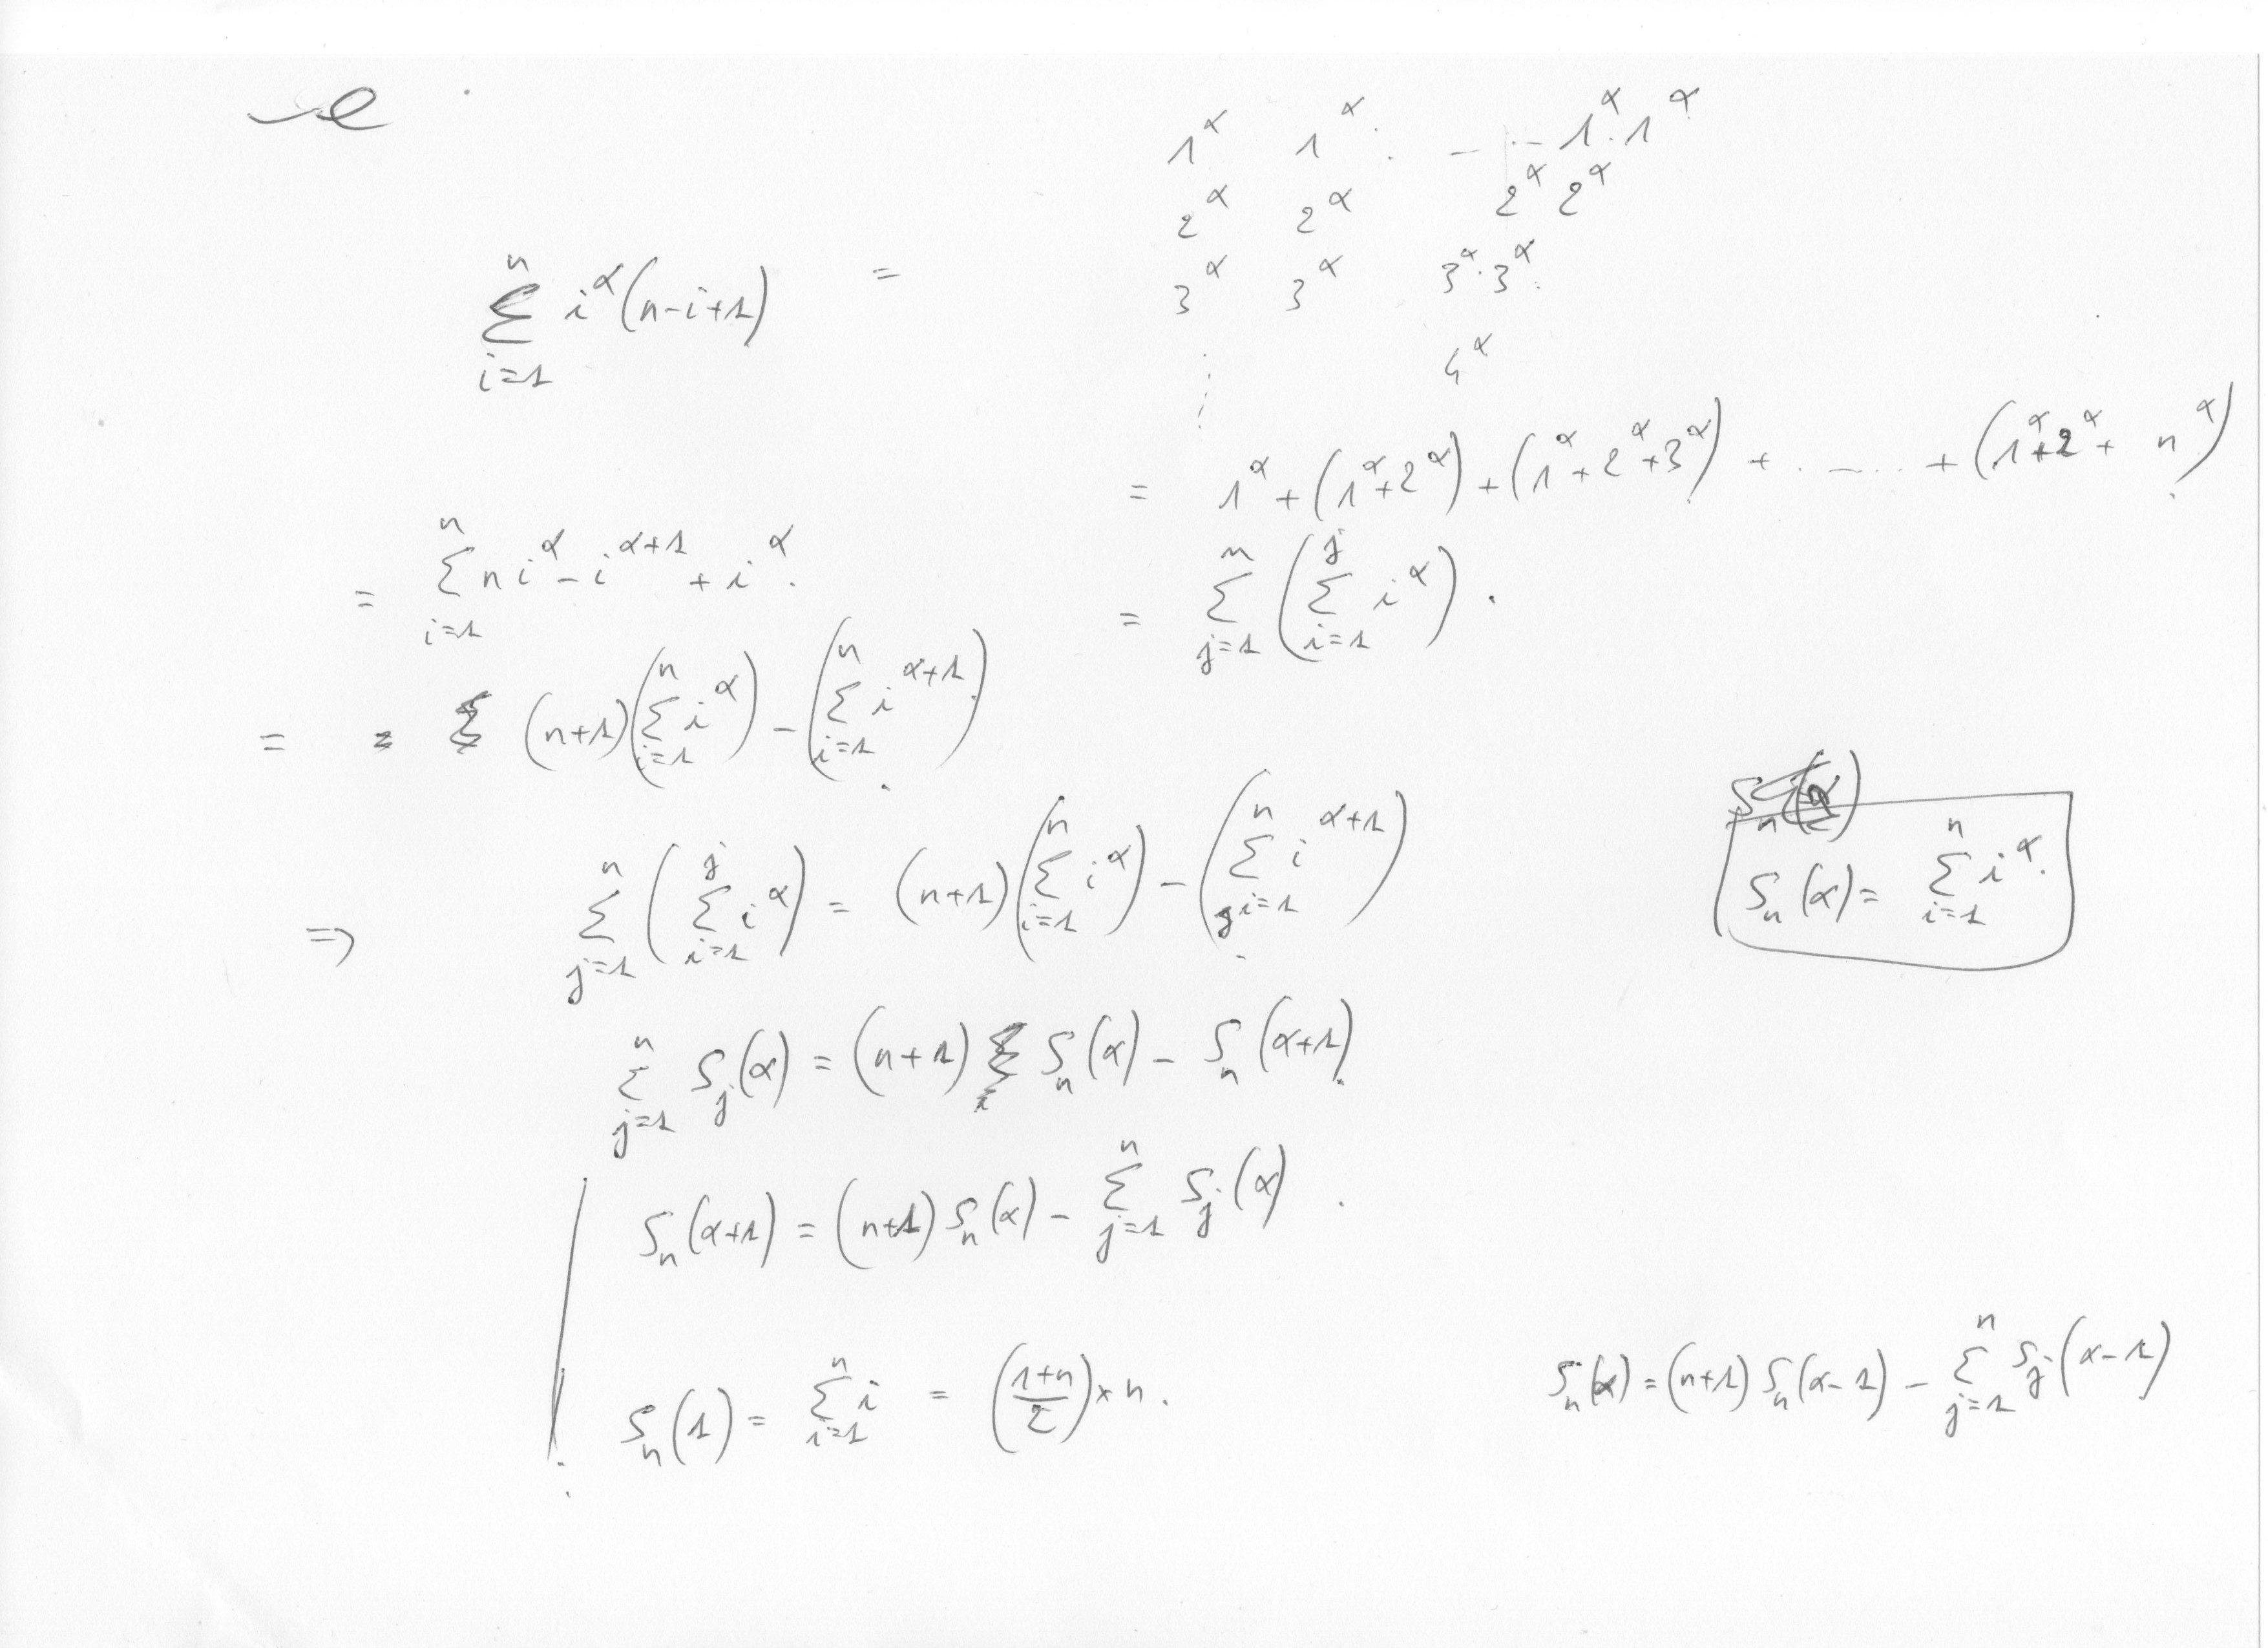 1^α 1^α . _ .-- 1^α . 1^α
2^α 2^α 2^α 2^α
3^α 3^α 3^α . 3^α .
4^α
∑_{i=1}^{n} i^α (n-i+1) =
= 1^α + (1^α + 2^α) + (1^α + 2^α + 3^α) + . ..... + (1^α + 2^α + n^α) .
= ∑_{i=1}^{n} n i^α - i^{α+1} + i^α .
= ∑_{j=1}^{n} ( ∑_{i=1}^{j} i^α ) .
= = (n+1) ( ∑_{i=1}^{n} i^α ) - ( ∑_{i=1}^{n} i^{α+1} ) .
⇒ ∑_{j=1}^{n} ( ∑_{i=1}^{j} i^α ) = (n+1) ( ∑_{i=1}^{n} i^α ) - ( ∑_{i=1}^{n} i^{α+1} ) .
S_n(α) = ∑_{i=1}^{n} i^α .
∑_{j=1}^{n} S_j(α) = (n+1) S_n(α) - S_n(α+1) .
S_n(α+1) = (n+1) S_n(α) - ∑_{j=1}^{n} S_j(α) .
S_n(1) = ∑_{i=1}^{n} i = ( (1+n)/2 ) × n .
S_n(α) = (n+1) S_n(α-1) - ∑_{j=1}^{n} S_j(α-1)